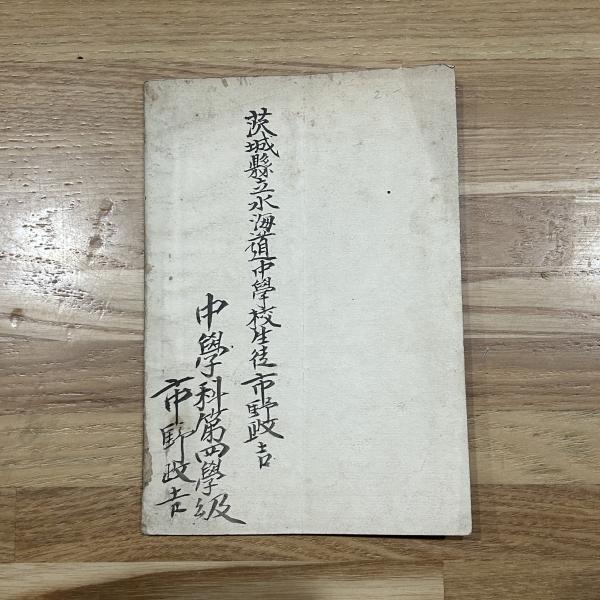 茨城縣立水海道中學校生徒市野政吉
中學科第四學級
市野政吉